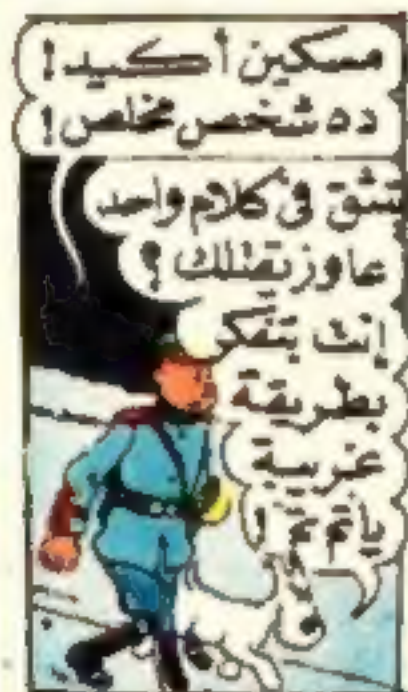 مسكين أكيد!
ده شخص مخلص!
تشق في كلام واحد
عاوز يقتلك؟
إنت بتفكر
بطريقة
غريبة
يا تم تم!